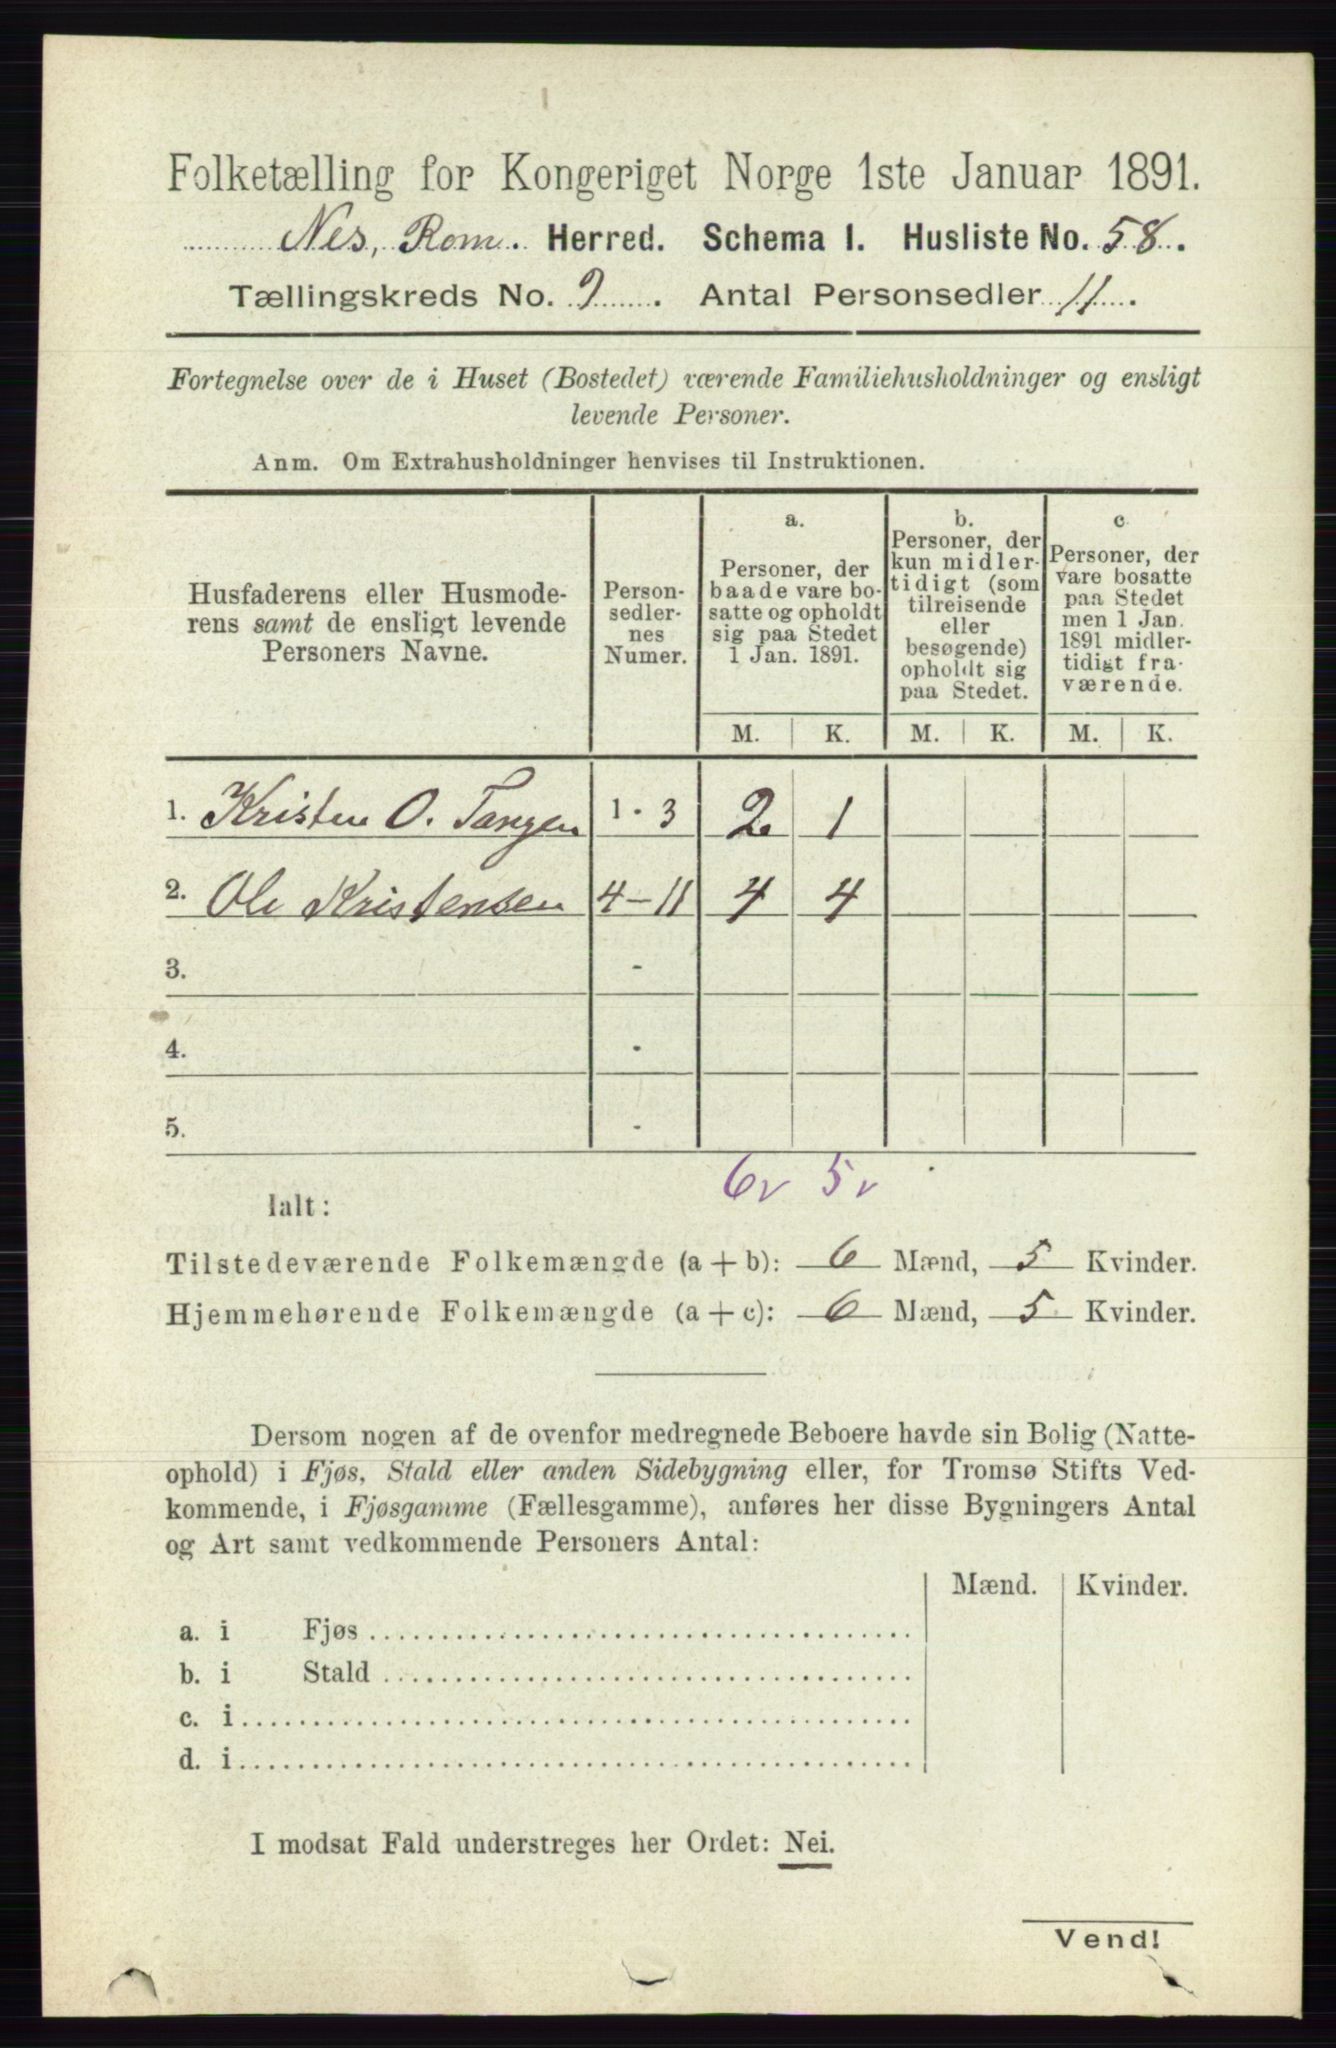 Folketælling for Kongeriget Norge 1ste Januar 1891.
Nes, Rom. Herred. Schema I. Husliste No. 58.
Tællingskreds No. 9. Antal Personsedler 11.
Fortegnelse over de i Huset (Bostedet) værende Familiehusholdninger og ensligt
levende Personer.
Anm. Om Extrahusholdninger henvises til Instruktionen.
Husfaderens eller Husmode-
rens samt de ensligt levende
Personers Navne.
Person-
sedler-
nes
Numer.
a.
Personer, der
baade vare bo-
satte og opholdt
sig paa Stedet
1 Jan. 1891.
b.
Personer, der
kun midler-
tidigt (som
tilreisende
eller
besøgende)
opholdt sig
paa Stedet.
c.
Personer, der
vare bosatte
paa Stedet
men 1 Jan.
1891 midler-
tidigt fra-
værende.
M. K. M. K. M. K.
1. Kristen O. Tangen 1 - 3 2 1
2. Ole Kristensen 4 - 11 4 4
3. -
4. -
5. -
6v 5v
Ialt:
Tilstedeværende Folkemængde (a + b): 6 Mænd, 5 Kvinder.
Hjemmehørende Folkemængde (a + c): 6 Mænd, 5 Kvinder.
Dersom nogen af de ovenfor medregnede Beboere havde sin Bolig (Natte-
ophold) i Fjøs, Stald eller anden Sidebygning eller, for Tromsø Stifts Ved-
kommende, i Fjøsgamme (Fællesgamme), anføres her disse Bygningers Antal
og Art samt vedkommende Personers Antal:
Mænd. Kvinder.
a. i Fjøs
b. i Stald
c. i
d. i
I modsat Fald understreges her Ordet: Nei.
Vend!